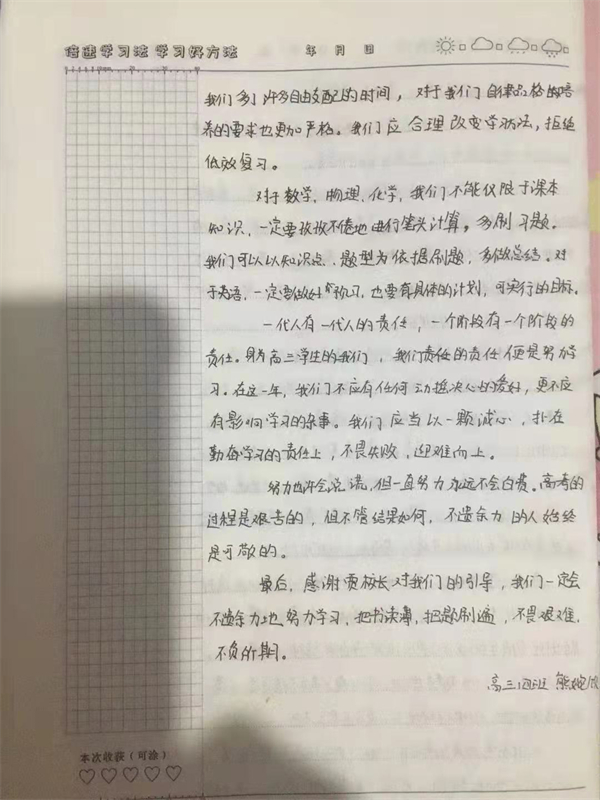 倍速学习法 学习好方法 年 月 日
我们多了许多自由支配的时间，对于我们自律品格的培
养的要求也更加严格。我们应合理改变学习方法，拒绝
低效复习。
对于数学、物理、化学，我们不能仅限于课本
知识，一定要孜孜不倦地进行埋头计算，多刷习题。
我们可以以知识点、题型为依据刷题，多做总结。对
于英语，一定要做好预习，也要有具体的计划，可实行的目标。
一代人有一代人的责任，一个阶段有一个阶段的
责任。身为高三学生的我们，我们责任的责任便是努力学
习。在这一年，我们不应有任何动摇决心的爱好，更不应
有影响学习的杂事。我们应当以一颗诚心，扑在
勤奋学习的责任上，不畏失败，迎难而上。
努力也许会说谎，但一直努力永远不会白费。高考的
过程是艰苦的，但不管结果如何，不遗余力的人始终
是可敬的。
最后，感谢贾校长对我们的引导，我们一定会
不遗余力地努力学习，把书读薄，把题刷遍，不畏艰难，
不负所期。
高三 班 熊
本次收获（可涂）